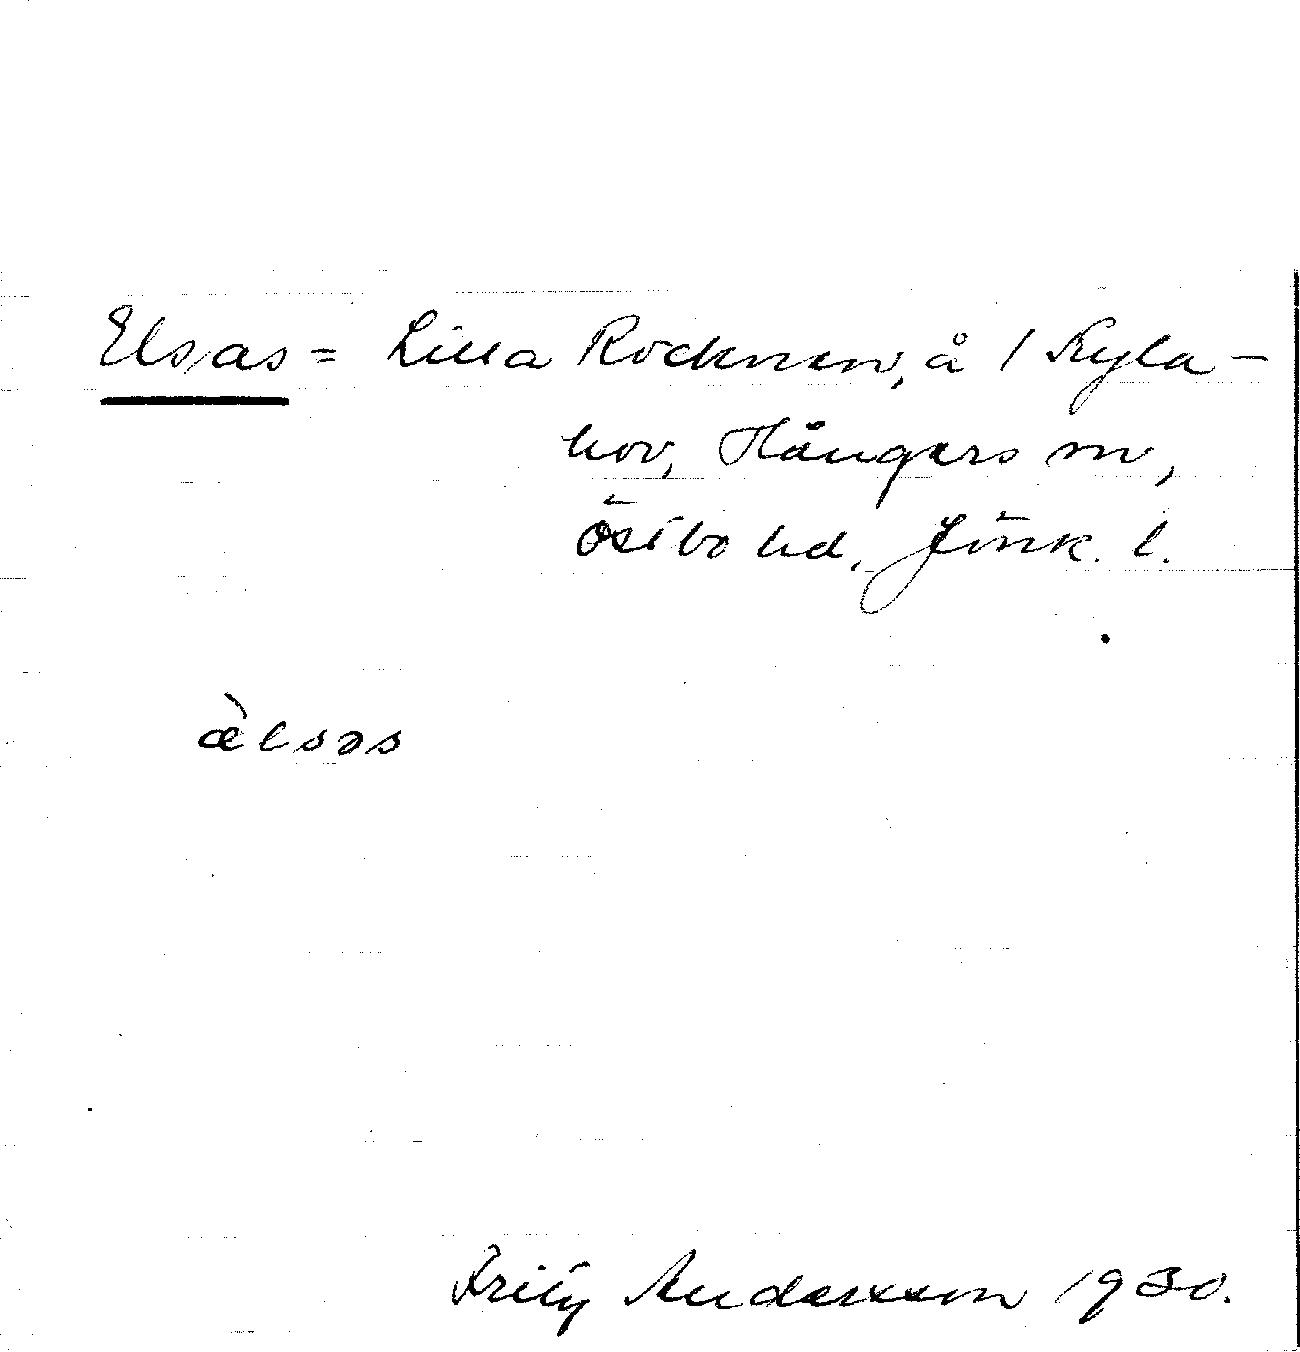 Elsas = Lilla Rocknen, å 1 Kyla-
hov, Hångers sn,
Östbo hd, Jönk. l.
æ̀lsəs
Fritz Andersson 1930.